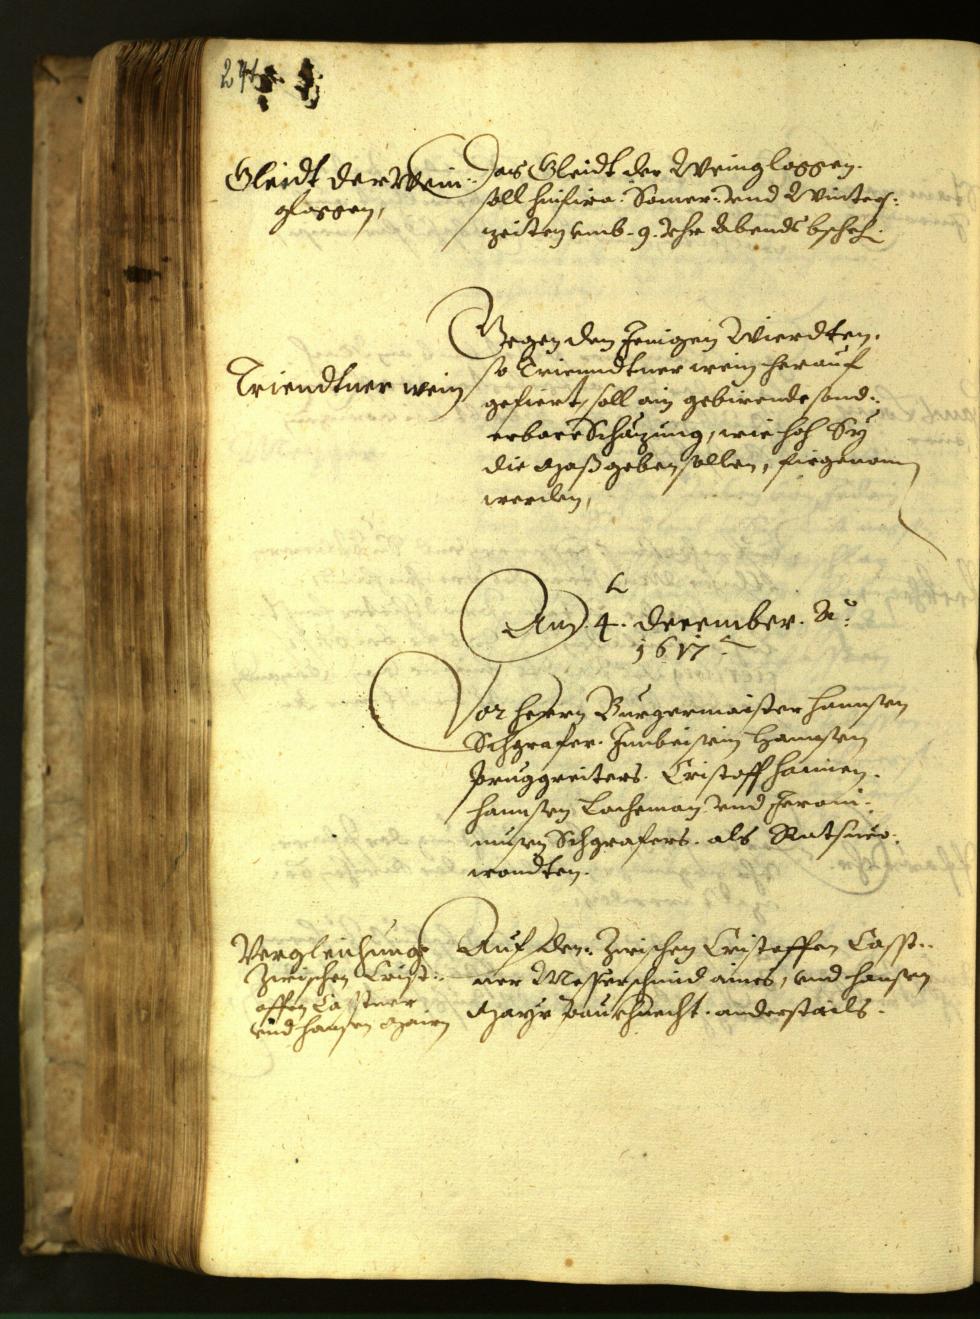 Gleidt der Wein=
gloggen,
Das Gleidt der Weingloggen.
soll hinfiro. Somer: vnd Winters:
zeiten vmb .9. Vhr Abends beschech.
Triendtner wein
Gegen den Jenigen Wierdten.
so Trienndtner wein herauf
gefiert, soll ain gebirende sond:
erbare Schäzung, wie hoch Sy
die Maß geben sollen, firgenom
werden,
Am .4. december. Ao:
1617
Vor herrn Burgermaister Hannsen
Schgrafer. Innbeisein Hannsen
Pruggreiters. Cristoff Hannen.
Hannsen Lacheman vnd Jeroni:
musen Schgrafers. als Ratsuer:
wondten.
Vergleichung
Zwischen Crist:
offen Castner
vnd Hansen Mairn
Auf den: Zwischen Cristoffen Casst:
ner Messerschmid aines, vnd Hansen
Mayr Paukhnecht. anderstails.